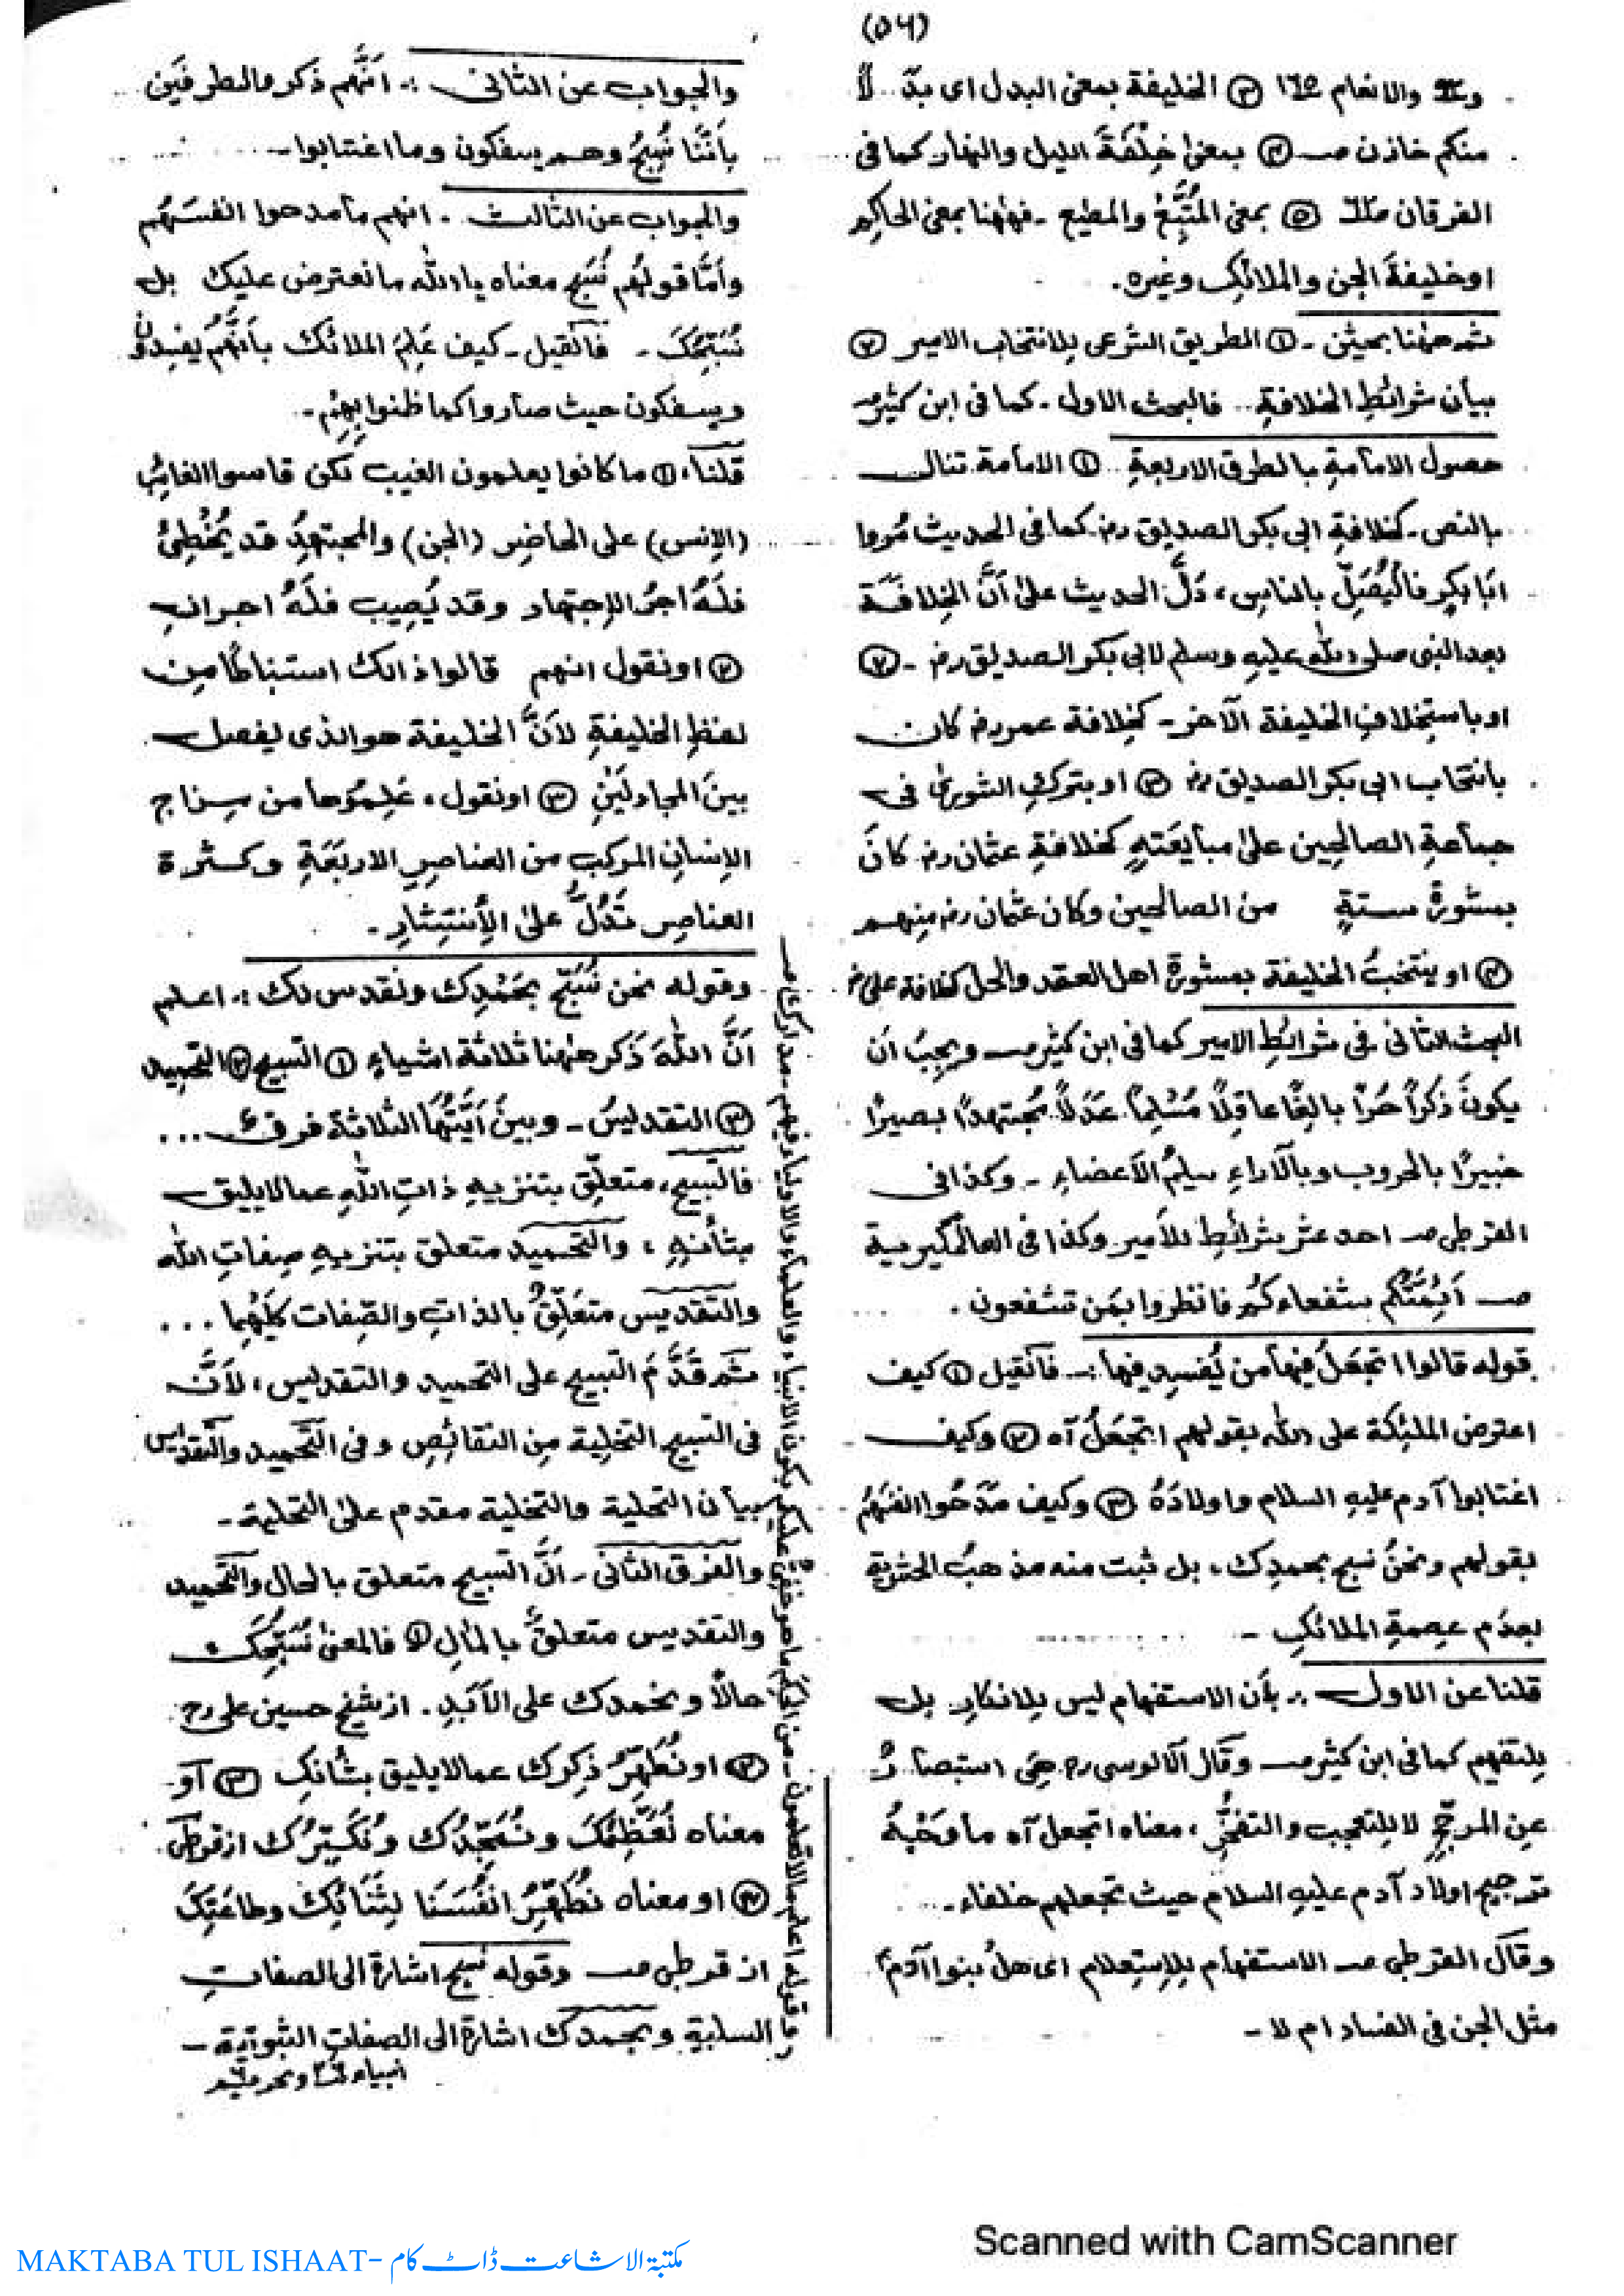 (٥٦)
والانعام ١٦٥ ③ الخليفة بمعنى البدل اى بدلاً
منكم خازن صـ ④ بمعنىٰ خِلْفَةَ الليل والنهار كما فى
الفرقان ⑤ بمعنى المُتَّبِعُ والمطيع ـ فههنا بمعنى الحاكِمِ
اوخليفةَ الجن والملائكِ وغيره ـ
ثم ههنا بحثين ـ ① الطريق الشرعى لِلانتخاب الامير ②
بيان شرائطِ الخلافةِ ـ فالبحث الاول ـ كما فى ابن كثير صـ
حصول الامامةِ بالطرق الاربعةِ ① الامامة تنال
بالنص ـ كخلافةِ ابى بكر الصديق رضـ كما فى الحديث مُروا
اَبَا بكرٍ فالْيُصَلِّ بالناسِ ، دَلَّ الحديث علىٰ اَنَّ الخِلافَة
بعد النبى صلى الله عليهِ وسلم لابى بكر الصديق رضـ ـ ②
اوباستِخلافِ الخليفة الآخر ـ كخلافة عمر رضـ كان
بانتخاب ابى بكر الصديق رضـ ③ اوبتركِ الشورىٰ فى
جماعةِ الصالحِين علىٰ مبايَعَتهٖ كخلافةِ عثمان رضـ كانَ
بمشورةِ ستةٍ من الصالحين وكان عثمان رضـ منهم
④ اوينتخبُ الخليفة بمشورة اهل العقد والحل كخلافة على رضـ
البحث الثانى فى شرائطِ الامير كما فى ابن كثير صـ ويجبُ اَن
يكونَ ذكراً حُرًّا بالِغًا عاقِلاً مُسْلِماً عَدَلاً مُجتهدًا بصيرًا
خبيرًا بالحروب وبالآراءِ سليمُ الاَعضاءِ ـ وكذا فى
القرطبى صـ احد عشر شرائطِ للامير وكذا فى العالمگيرية
صـ اَئِمَّتُكُم شفعاءكُم فانظروا بمَن تشفعون ـ
قوله قالوا اتجعَلُ فيها من يُفسِد فيها :ـ فاَنقيل ① كيف
اعترض الملئكة على الله بقولهم اتجعَلُ آه ② وكيف
اغتابوا آدم عليهِ السلام واولادَهُ ③ وكيف مَدَحُوا انفسَهُم
بقولهم ونحنُ نسبح بحمدِك ، بل ثبت منه مذهبُ الحشوية
بعدَم عِصمةِ الملائكِ ـ
قلنا عن الاول :ـ بأن الاستفهام ليس لِلانكارِ بل
لِلتفهيم كما فى ابن كثير صـ وقال آلالوسى رح هِىَ استبصارٌ
عن المرجّحِ لا لِلتعجب والتفحُّرِ ، معناه اتجعل آه ما وَجْهُ
ترجيح اولاد آدم عليهِ السلام حيث تجعلهم خلفاء ـ
وقَالَ القرطبى صـ الاستفهام لِلاِستِعلام اى هلُ بنوا آدمَ
مثل الجن فى الفساد ام لا ـ
والجواب عن الثانى :ـ اَنَّهُم ذكروا الطرفَين
بأنَّنَا نُسبِّحُ وهم يسفكون وما اغتابوا ـ
والجواب عن الثالث ـ انهم ما مدحوا انفسَهُم
وأمّا قولهُم نُسَبِّحُ معناه يا الله ما نعترض عليك بل
نُسَبِّحُكَ ـ فاَنقيل ـ كيف عَلِمَ الملائك بأنَّهُم يفسِدُونَ
ويسفكون حيث صاروا كما ظنوا بِهِم ـ
قلنا ، ① ما كانوا يعلمون الغيب لكن قاسوا الغائِبَ
(الإنس) على الحاضِر (الجن) والمجتهِدُ قد يُخْطِئُ
فلَهُ اجرُ الإجتهاد وقد يُصِيب فلَهُ اجرانِ
② اونقول انهم قالوا ذالك استنباطًا مِن
لفظِ الخليفةِ لاَنَّ الخليفة هو الذى يفصل
بينَ المجادلَيْنِ ③ اونقول ، عَلِمُوها من مِزاج
الإنسانِ المركب من العناصِرِ الاربَعَةِ وكثرة
العناصِر تَدُلُّ علىٰ الإنتِثارِ ـ
وقوله نحن نُسَبِّح بحَمْدِك ونقدس لك :ـ اعلم
اَنَّ اللهَ ذَكر ههنا ثلاثة اشياءٍ ① التسبيح ② التحميد
③ التقديسُ ـ وبينَ اَيَّتُهَا الثلاثة فرقٌ ...
فالتسبيح ، متعلِّق بتنزيهِ ذاتِ اللهِ عما لايليق
بشأنهٖ ، والتحميد متعلق بتنزيهِ صِفاتِ الله
والتقديس متعَلِّقٌ بالذاتِ والصِّفات كِلَيْهِما ...
ثم قَدَّمَ التسبيح على التحميد والتقديس ، لأَنَّ
فى التسبيح التخلية مِن النقائصِ وفى التَّحميد والتَّقديس
بيأن التحلية والتخلية مقدم علىٰ التحلية ـ
والفرق الثانى ـ اَنَّ التسبيح متعلق بالحال والتَّحميد
والتقديس متعلقٌ بالمٰالِ ① فالمعنىٰ نُسَبِّحُك
حالاً ونحمدك على الآبَدِ ـ از شيخ حسين على رح
② اونُطَهِّرُ ذِكرك عما لايليق بشأنكِ ③ آو
معناه نُعَظِّمُكَ ونُمَجِّدُك ونُكَبِّرُك از قرطبى
④ او معناه نُطَهِّرُ انفُسَنَا لِثَنَائِكَ وطاعَتِكَ
از قرطبى صـ وقوله نسبح اشارة الى الصفاتِ
السلبيةِ وبحمدك اشارة الى الصفاتِ الثبوتية ـ
وقوله اعلم مالاتعلمون ـ من الحِكَم ما هو خفىٌ عليكم بكون الانبياء والعلماء والاولياء فيهم ـ مدارك صـ
Scanned with CamScanner
MAKTABA TUL ISHAAT- مکتبۃ الاشاعت ڈاٹ کام